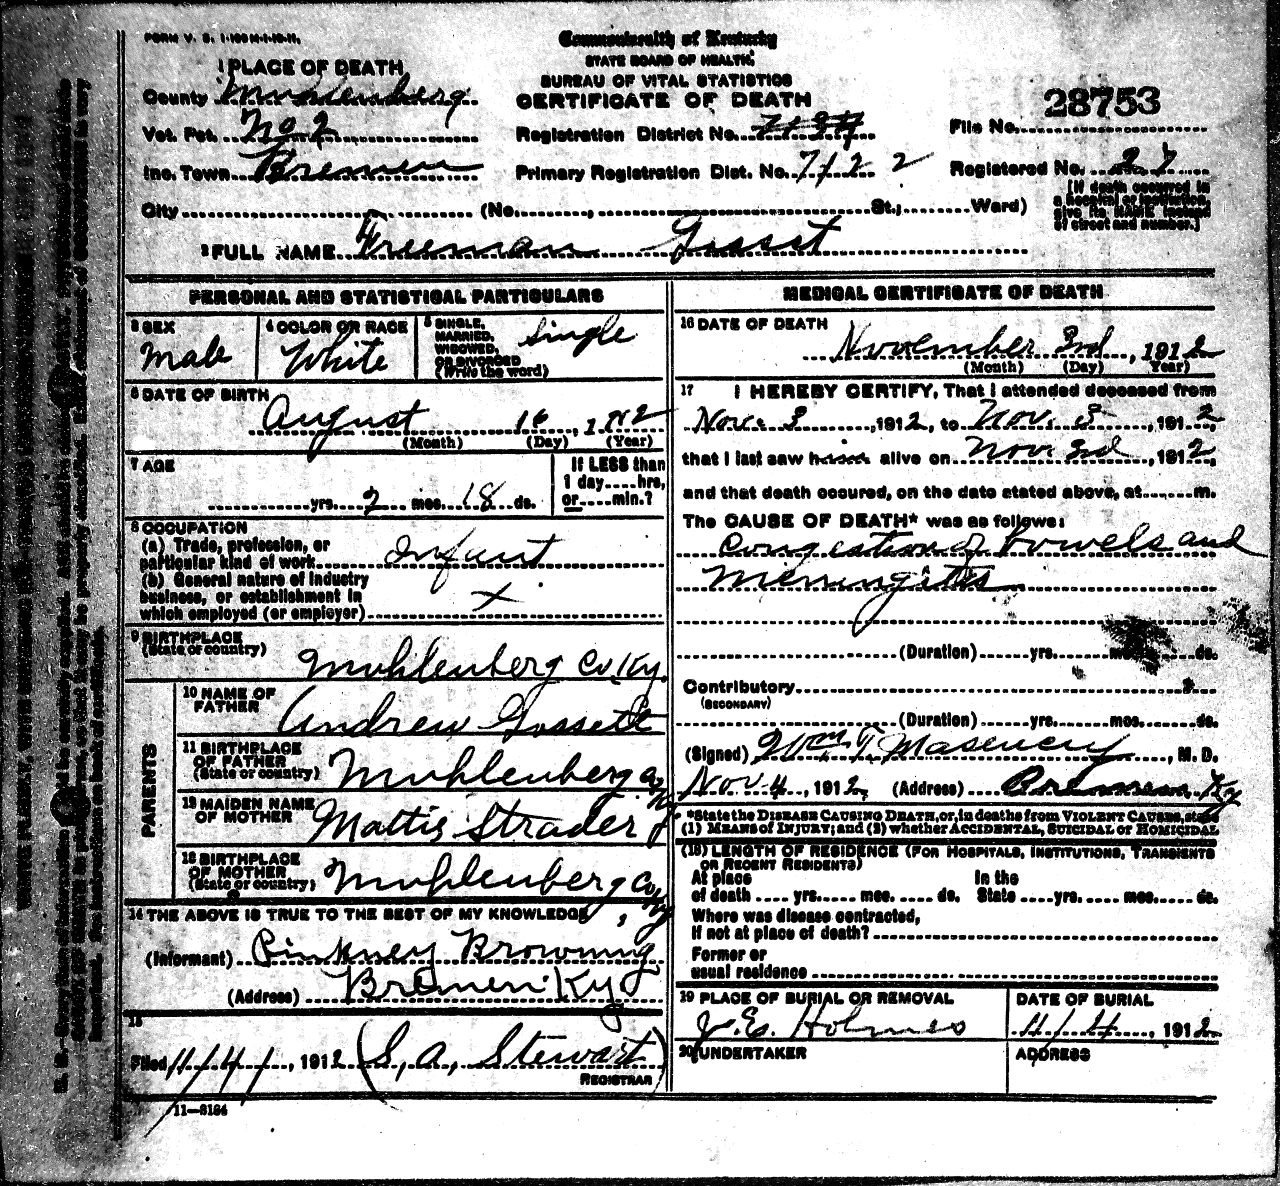 FORM V. S. 1-100M-1-10-11.
Commonwealth of Kentucky
STATE BOARD OF HEALTH.
BUREAU OF VITAL STATISTICS
CERTIFICATE OF DEATH
1 PLACE OF DEATH
County Muhlenberg
Vot. Pct. No 2
Inc. Town Bremen
Registration District No.
Primary Registration Dist. No. 7122
File No. 28753
Registered No. 27
[If death occurred in
a hospital or institution,
give its NAME instead
of street and number.]
City (No., St.; Ward)
2 FULL NAME Freeman Gosset
PERSONAL AND STATISTICAL PARTICULARS
3 SEX
Male
4 COLOR OR RACE
White
5 SINGLE,
MARRIED,
WIDOWED,
OR DIVORCED
(Write the word)
Single
6 DATE OF BIRTH
August 16, 1912
(Month) (Day) (Year)
7 AGE
yrs. 2 mos. 18 ds.
If LESS than
1 day....hrs,
or.....min.?
8 OCCUPATION
(a) Trade, profession, or
particular kind of work Infant
(b) General nature of industry
business, or establishment in
which employed (or employer) x
9 BIRTHPLACE
(State or country)
Muhlenberg Co Ky.
PARENTS
10 NAME OF
FATHER
Andrew Gossett
11 BIRTHPLACE
OF FATHER
(State or country)
Muhlenberg Co Ky
12 MAIDEN NAME
OF MOTHER
Mattie Strader
13 BIRTHPLACE
OF MOTHER
(State or country)
Muhlenberg Co, Ky
14 THE ABOVE IS TRUE TO THE BEST OF MY KNOWLEDGE
(Informant) Pinkney Browning
(Address) Bremen Ky
15
Filed 11/4/, 1912 (S, A, Stewart)
REGISTRAR
11-3184
MEDICAL CERTIFICATE OF DEATH
16 DATE OF DEATH
November 3rd, 1912
(Month) (Day) (Year)
17 I HEREBY CERTIFY, That I attended deceased from
Nov. 3, 1912, to Nov. 3, 1912,
that I last saw him alive on Nov. 3rd, 1912,
and that death occured, on the date stated above, at......m.
The CAUSE OF DEATH* was as follows:
Congestion of bowels and
Menningitis
(Duration) yrs. mos. ds.
Contributory
(SECONDARY)
(Duration) yrs. mos. ds.
(Signed) Wm T. , M. D.
Nov. 4, 1912, (Address) Bremen, Ky
*State the DISEASE CAUSING DEATH, or, in deaths from VIOLENT CAUSES, state
(1) MEANS of INJURY; and (2) whether ACCIDENTAL, SUICIDAL or HOMICIDAL
(18) LENGTH OF RESIDENCE (FOR HOSPITALS, INSTITUTIONS, TRANSIENTS
OR RECENT RESIDENTS)
At place In the
of death yrs. mos. ds. State yrs. mos. ds.
Where was disease contracted,
If not at place of death?
Former or
usual residence
19 PLACE OF BURIAL OR REMOVAL
J. E. Holmes
DATE OF BURIAL
11/4, 1912
20 UNDERTAKER
ADDRESS